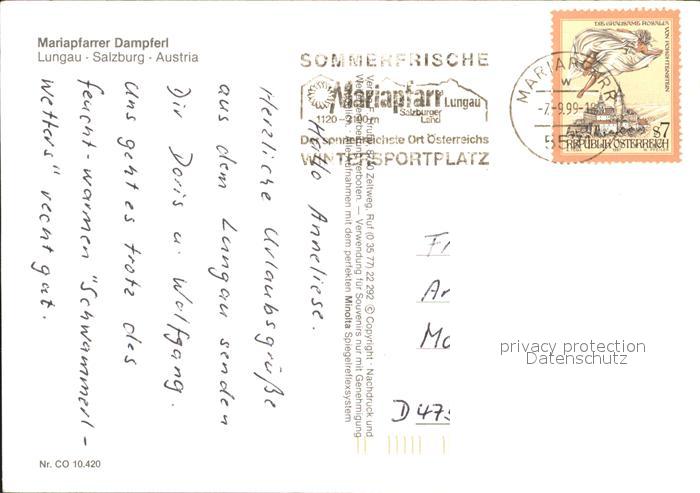 Mariapfarrer Dampferl
Lungau · Salzburg · Austria
SOMMERFRISCHE
Mariapfarr Lungau
Salzburger
Land
1120-3100 m
Der sonnenreichste Ort Österreichs
WINTERSPORTPLATZ
MARIAPFARR
W
-7.-9.99-18
55
DIE GRAUSAME ROSALIA VON FORCHTENSTEIN
S7
REPUBLIK ÖSTERREICH
Hallo Anneliese.
Herzliche Urlaubsgrüße
aus dem Lungau senden
Dir Doris u. Wolfgang.
Uns geht es trotz des
feucht-warmen "Schwammerl-
wetters" recht gut.
Zeltweg, Ruf (0 35 77) 22 292 © Copyright · Nachdruck und
verboten. — Verwendung für Souvenirs nur mit Genehmigung
Aufnahmen mit dem perfekten Minolta Spiegelreflexsystem
D 475
privacy protection
Datenschutz
Nr. CO 10.420